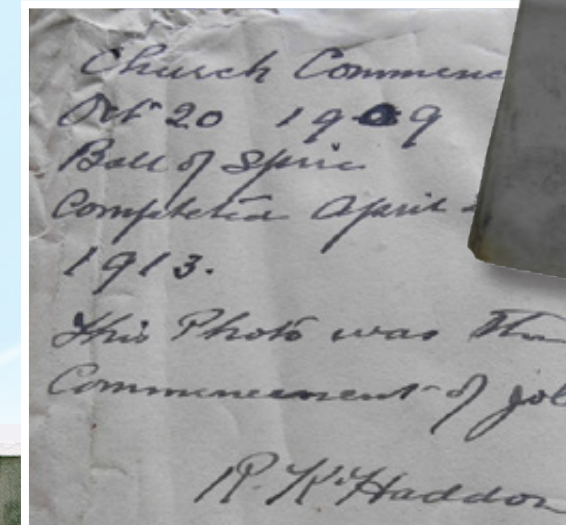 Church Commenc
Oct 20 1909
Ball of Spire
Completed April
1913.
This Photo was the
Commencement of job
R. K. Haddon